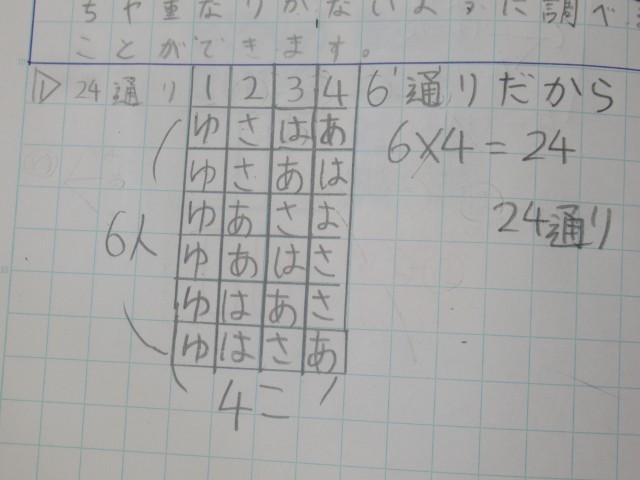 ちや重なりがないように調べ
ことができます。
① 24通り 1 2 3 4 6通りだから
ゆ さ は あ
6×4=24
ゆ さ あ は
ゆ あ さ は
24通り
6人
ゆ あ は さ
ゆ は あ さ
ゆ は さ あ
4こ